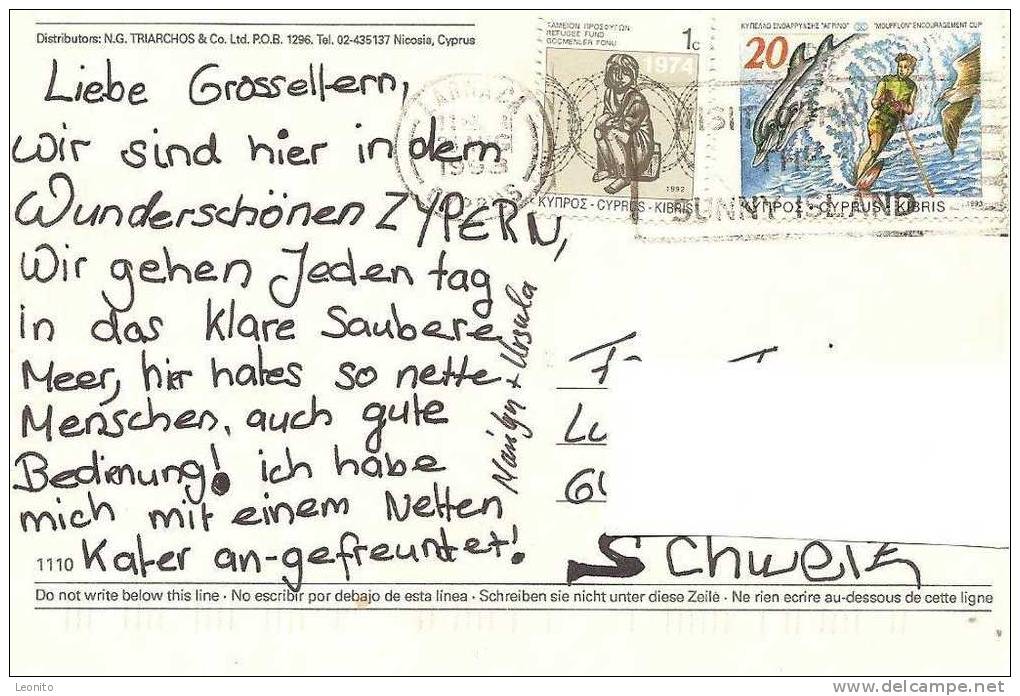 Distributors: N.G. TRIARCHOS & Co. Ltd. P.O.B. 1296. Tel. 02-435137 Nicosia, Cyprus
Liebe Grosseltern,
wir sind hier in dem
Wunderschönen ZYPERN,
Wir gehen Jeden tag
in das klare Saubere
Meer, hier hates so nette
Menschen, auch gute
Bedienung! ich habe
mich mit einem Netten
Kater an-gefreuntet!
Marilyn + Ursula
1110
ΤΑΜΕΙΟΝ ΠΡΟΣΦΥΓΩΝ
REFUGEE FUND
GÖÇMENLER FONU
1c
1974
1992
ΚΥΠΡΟΣ - CYPRUS - KIBRIS
ΚΥΠΕΛΛΟ ΕΝΘΑΡΡΥΝΣΗΣ "ΑΓΡΙΝΟ"
"MOUFFLON" ENCOURAGEMENT CUP
20
ΚΥΠΡΟΣ - CYPRUS - KIBRIS
1993
LARNACA
1993
VISIT
SUNNY ISLAND
Schweiz
Do not write below this line · No escribir por debajo de esta línea · Schreiben sie nicht unter diese Zeile · Ne rien ecrire au-dessous de cette ligne
Leonito
www.delcampe.net